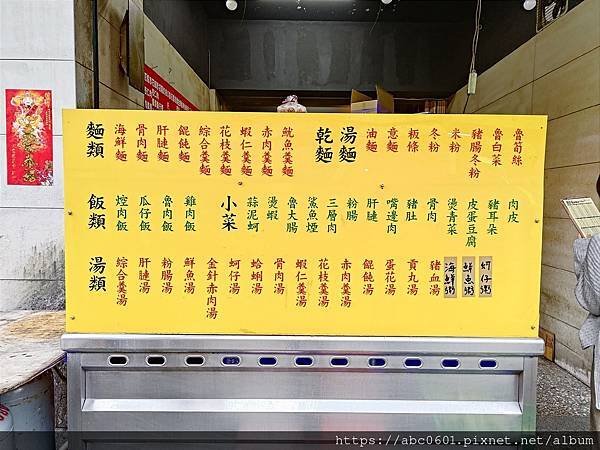 麵類
海鮮麵
骨肉麵
肝腱麵
餛飩麵
綜合羹麵
花枝羹麵
蝦仁羹麵
赤肉羹麵
魷魚羹麵
乾麵
湯麵
油麵
意麵
粄條
冬粉
米粉
豬腸冬粉
魯白菜
魯筍絲
飯類
焢肉飯
瓜仔飯
魯肉飯
雞肉飯
小菜
蒜泥蚵
燙蝦
魯大腸
鯊魚煙
三層肉
粉腸
肝腱
嘴邊肉
豬肚
骨肉
燙青菜
皮蛋豆腐
豬耳朵
肉皮
湯類
綜合羹湯
肝腱湯
粉腸湯
鮮魚湯
金針赤肉湯
蚵仔湯
蛤蜊湯
骨肉湯
蝦仁羹湯
花枝羹湯
赤肉羹湯
餛飩湯
蛋花湯
貢丸湯
豬血湯
海鮮粥
鮮魚粥
蚵仔粥
https://abc0601.pixnet.net/album